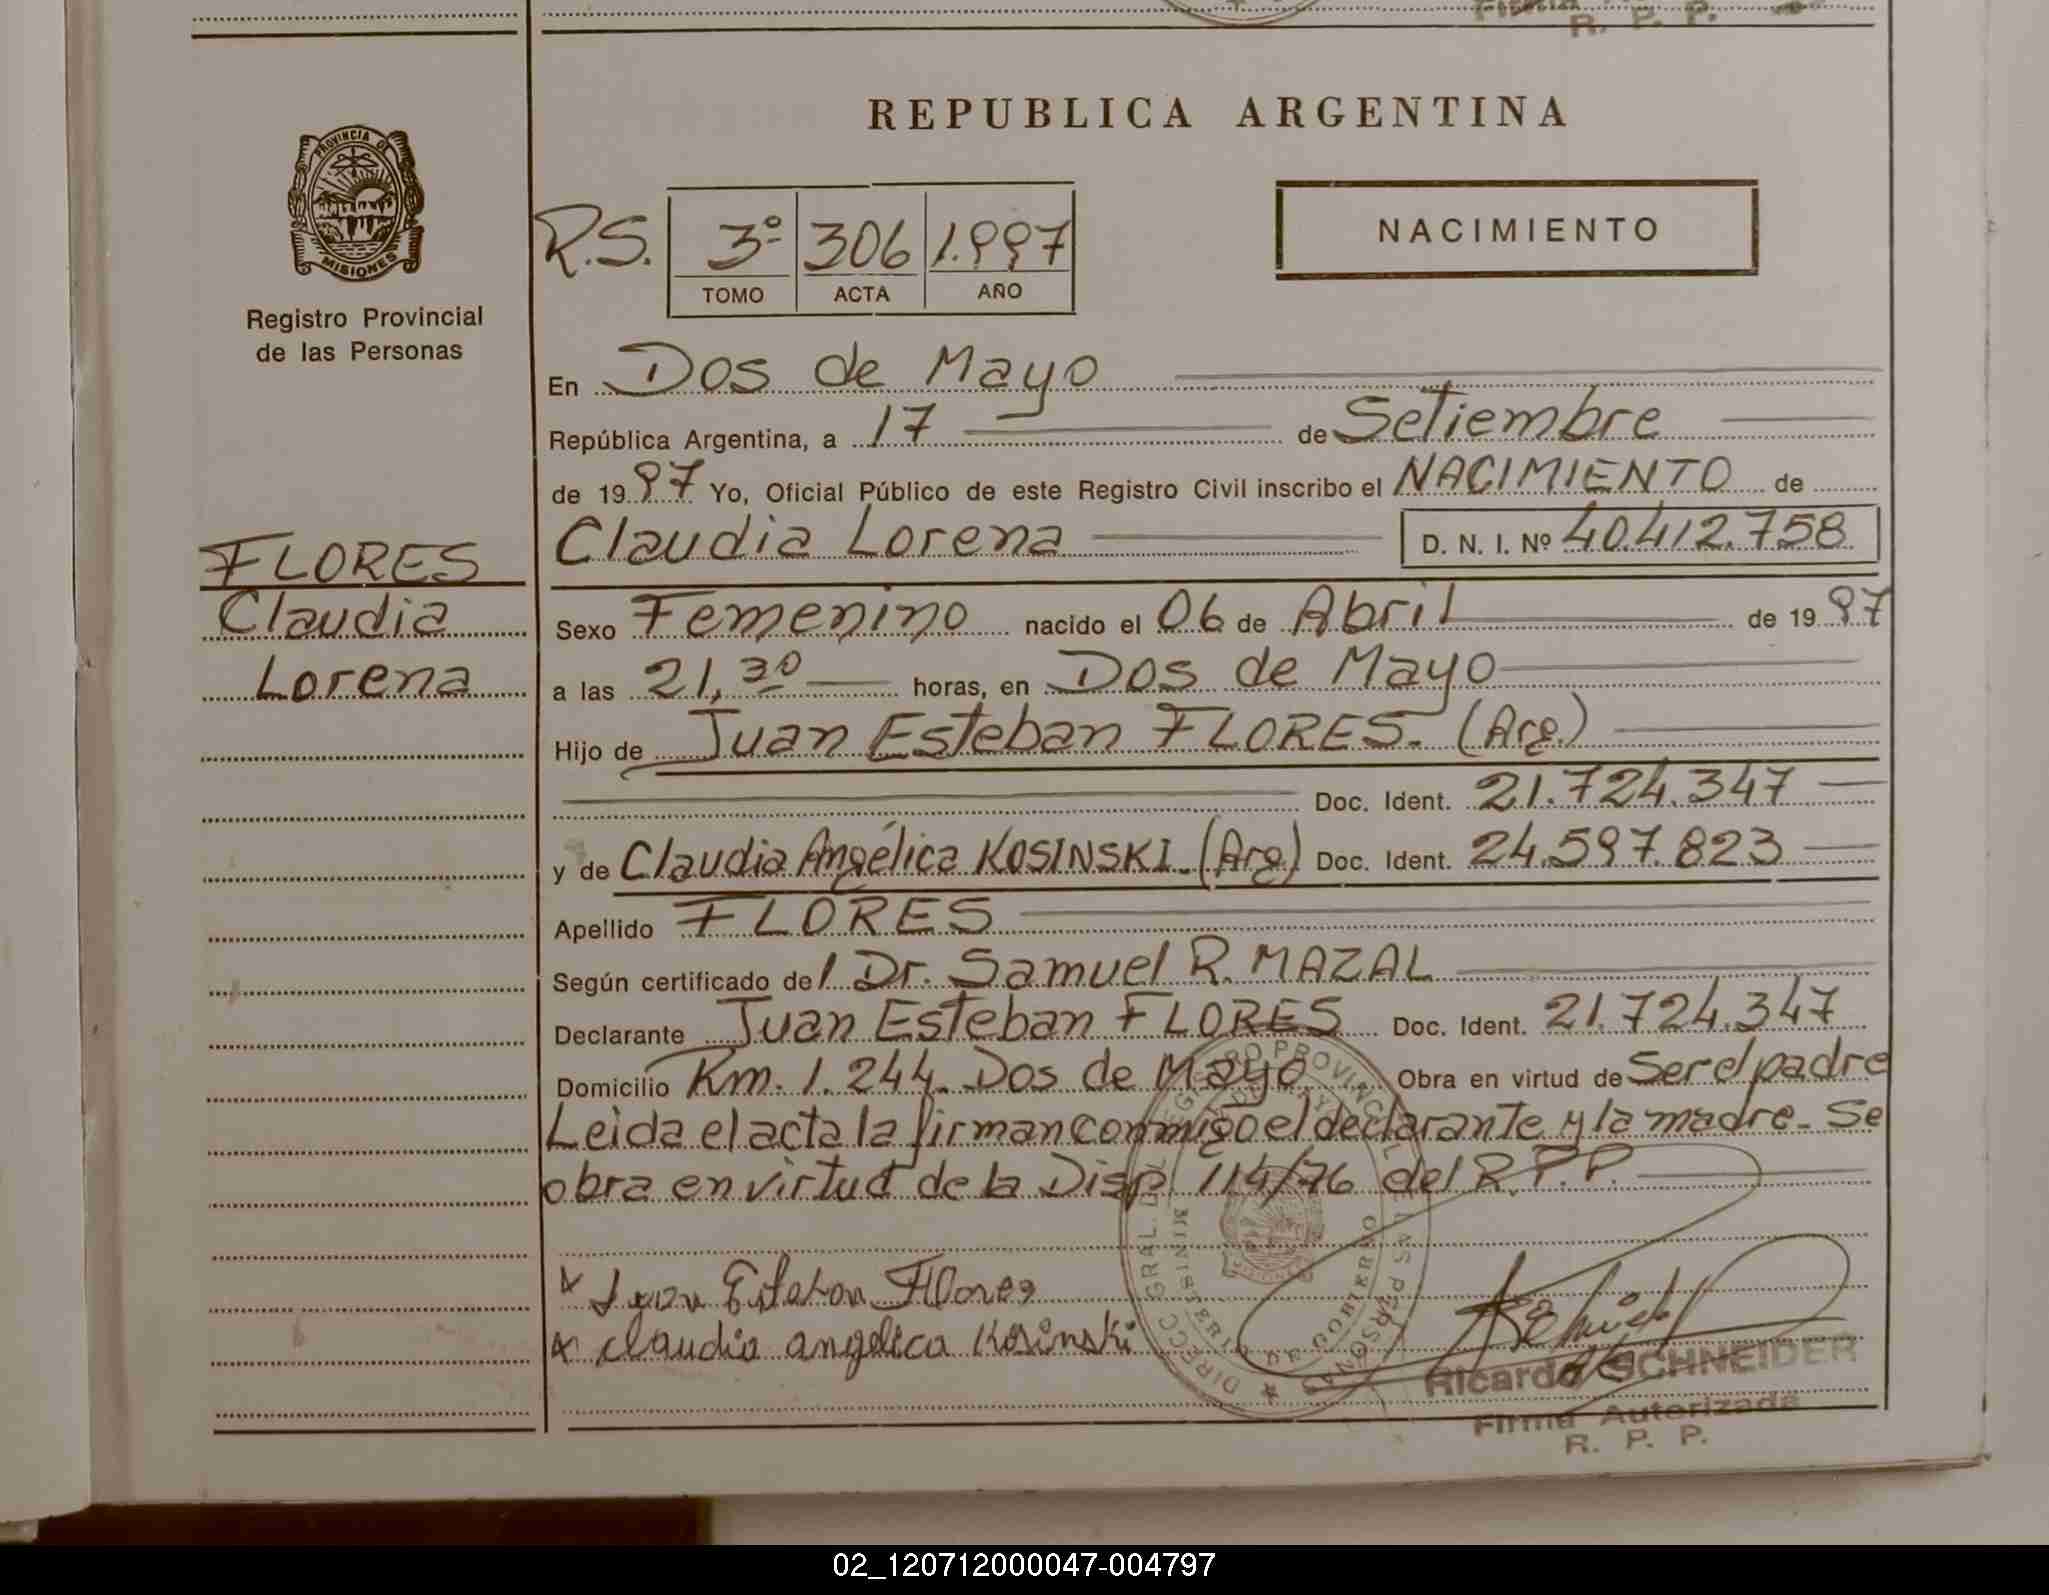 R. P. P.
REPUBLICA ARGENTINA
PROVINCIA DE
MISIONES
Registro Provincial
de las Personas
R.S. 3º 306 1.997
TOMO ACTA AÑO
NACIMIENTO
En Dos de Mayo
República Argentina, a 17 de Setiembre
de 1997 Yo, Oficial Público de este Registro Civil inscribo el NACIMIENTO de
Claudia Lorena D. N. I. Nº 40.412.758
FLORES
Claudia
Lorena
Sexo Femenino nacido el 06 de Abril de 1997
a las 21,30 horas, en Dos de Mayo
Hijo de Juan Esteban FLORES. (Arg.)
Doc. Ident. 21.724.347
y de Claudia Angélica KOSINSKI. (Arg) Doc. Ident. 24.597.823
Apellido FLORES
Según certificado del Dr. Samuel R. MAZAL
Declarante Juan Esteban FLORES Doc. Ident. 21.724.347
Domicilio Km. 1.244. Dos de Mayo Obra en virtud de Ser el padre
Leida el acta la firman conmigo el declarante y la madre. Se
obra en virtud de la Disp. 114/76 del R.P.P.
x Juan Esteban Flores
x Claudia angelica Kosinski
Ricardo SCHNEIDER
Firma Autorizada
R. P. P.
02_120712000047-004797